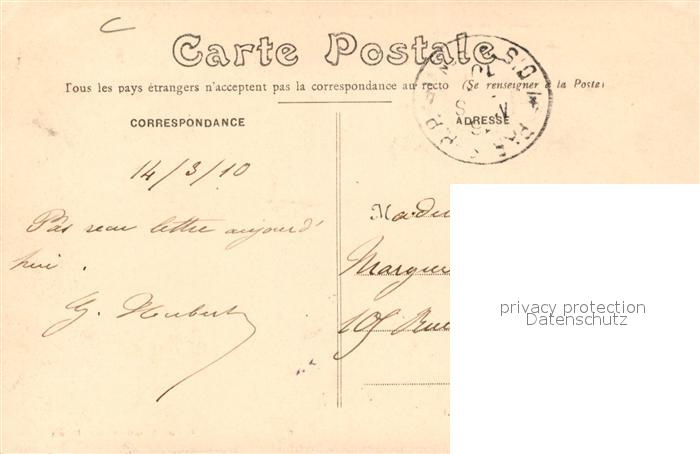 C
Carte Postale
Tous les pays étrangers n'acceptent pas la correspondance au recto (Se renseigner à la Poste)
CORRESPONDANCE
ADRESSE
14/3/10
Pas reçu lettre aujourd'
hui .
G. Hubert
Marguer
105 Rue
privacy protection
Datenschutz